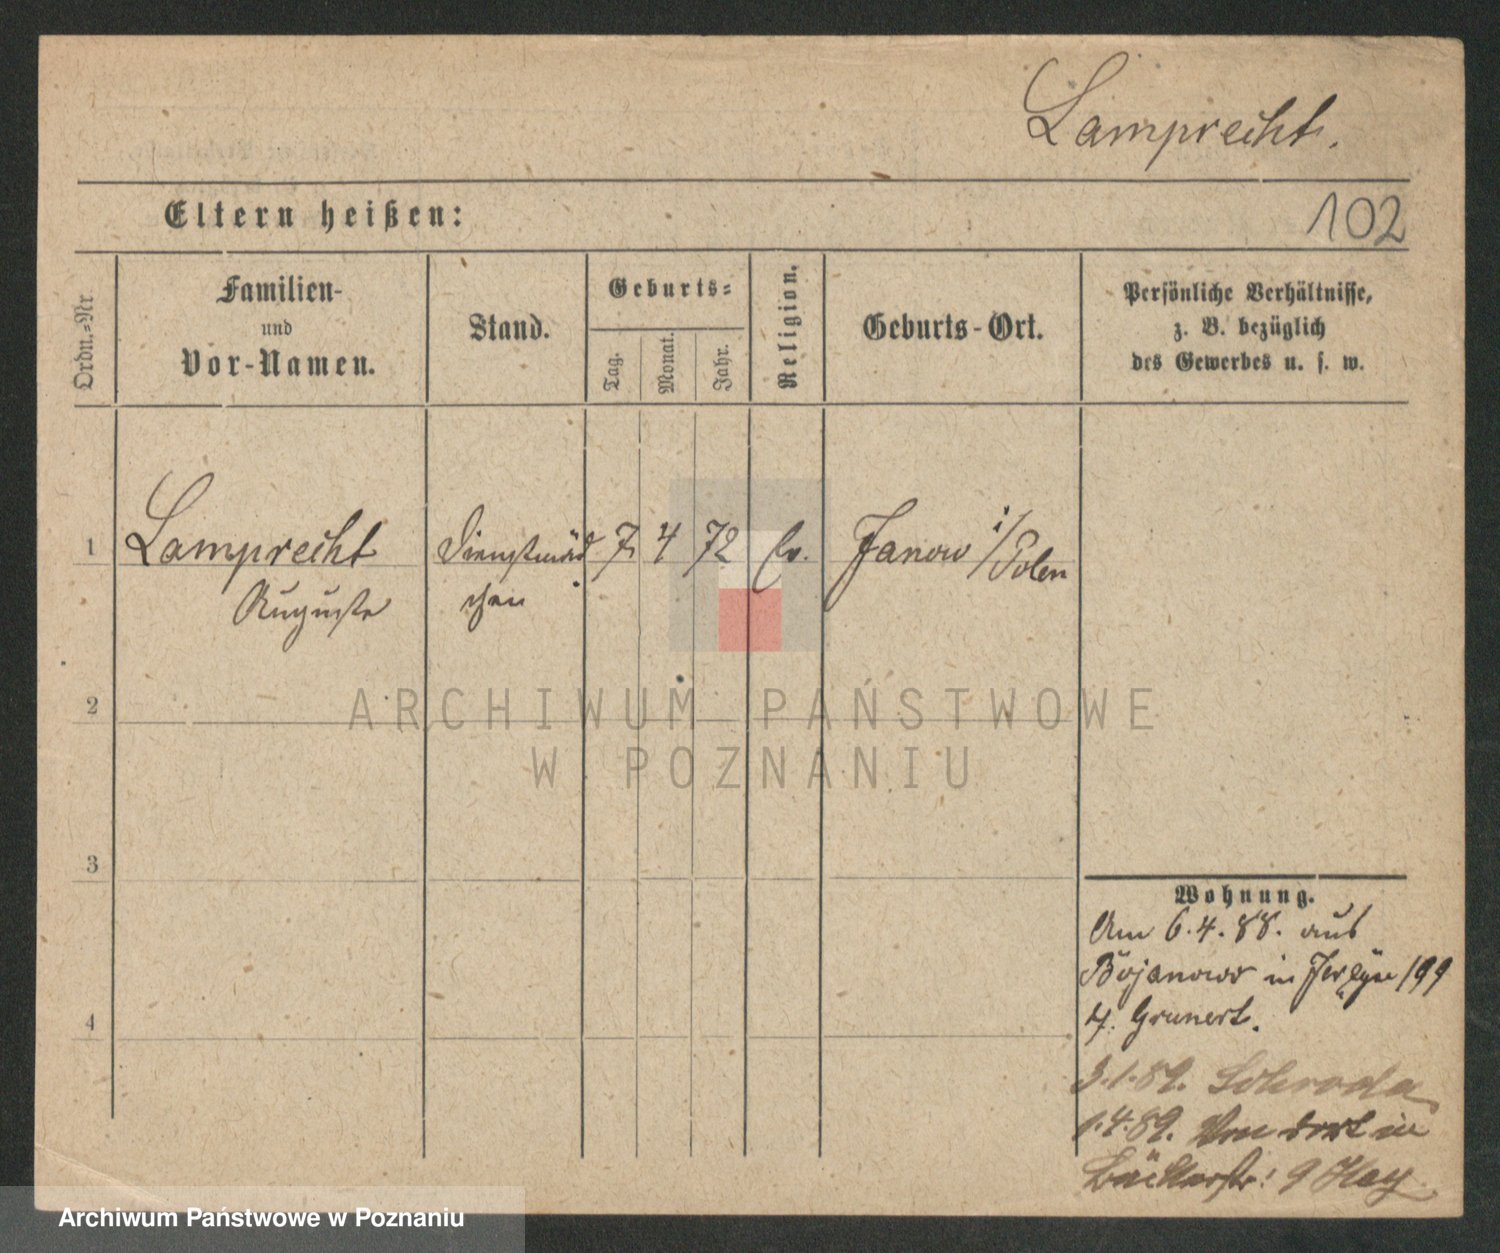 Lamprecht.
Eltern heißen:
102
Ordn.=Nr
Familien-
und
Vor-Namen.
Stand.
Geburts=
Tag.
Monat.
Jahr.
Religion.
Geburts-Ort.
Persönliche Verhältnisse,
z. B. bezüglich
des Gewerbes u. s. w.
1 Lamprecht Dienstmäd 7. 4 72 Ev. Janow i/Polen
Auguste chen
2
3
4
Wohnung.
Am 6.4.88. aus
Bojanowo in 199
4. Grunert.
3.1.89. Schroda
1.4.89. Von dort in
Bäckerstr: 9
ARCHIWUM PAŃSTWOWE
W POZNANIU
Archiwum Państwowe w Poznaniu